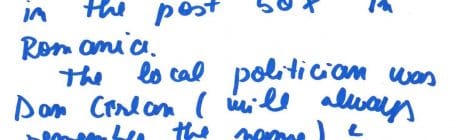 in the post box in
Romania.
The local politician was
Dan Cristan ( will always
remember the name) &